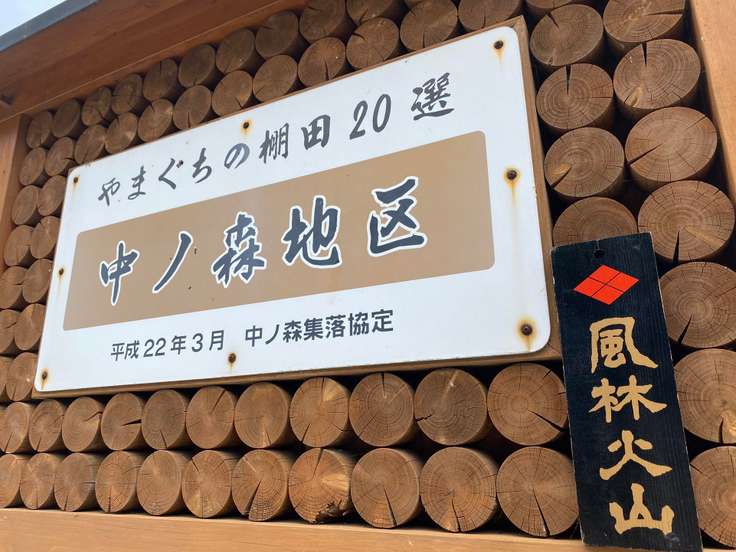 やまぐちの棚田20選
中ノ森地区
平成22年3月 中ノ森集落協定
風林火山